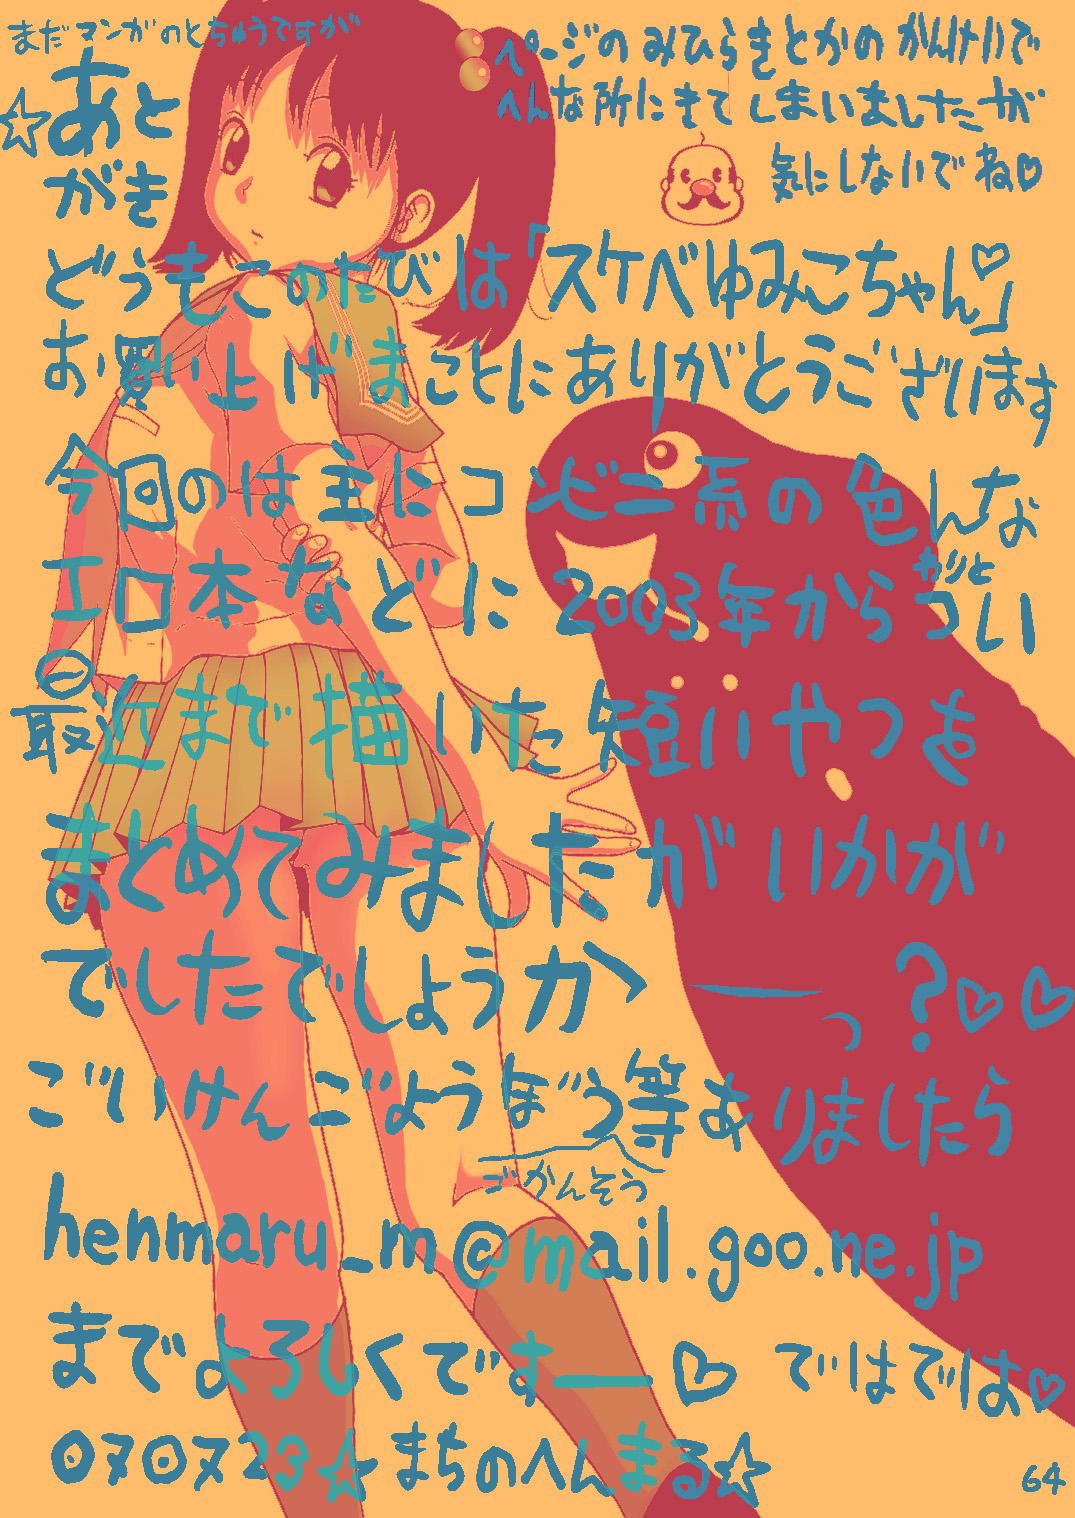 まだマンガのとちゅうですが
☆あと
がき
ページのみひらきとかのかんけいで
へんな所にきてしまいましたが
気にしないでね♡
どうもこのたびは「スケベゆみこちゃん♡」
お買い上げまことにありがとうございます
今回のは主にコンビニ系の色んな
エロ本などに2003年から
つい
最近まで描いた短いやつも
まとめてみましたがいかが
でしたでしょうかーっ?♡♡
ごいけんごようぼう等ありましたら
ごかんそう
henmaru_m@mail.goo.ne.jp
までよろしくですー♡ ではでは♡
070723☆まちのへんまる☆
64